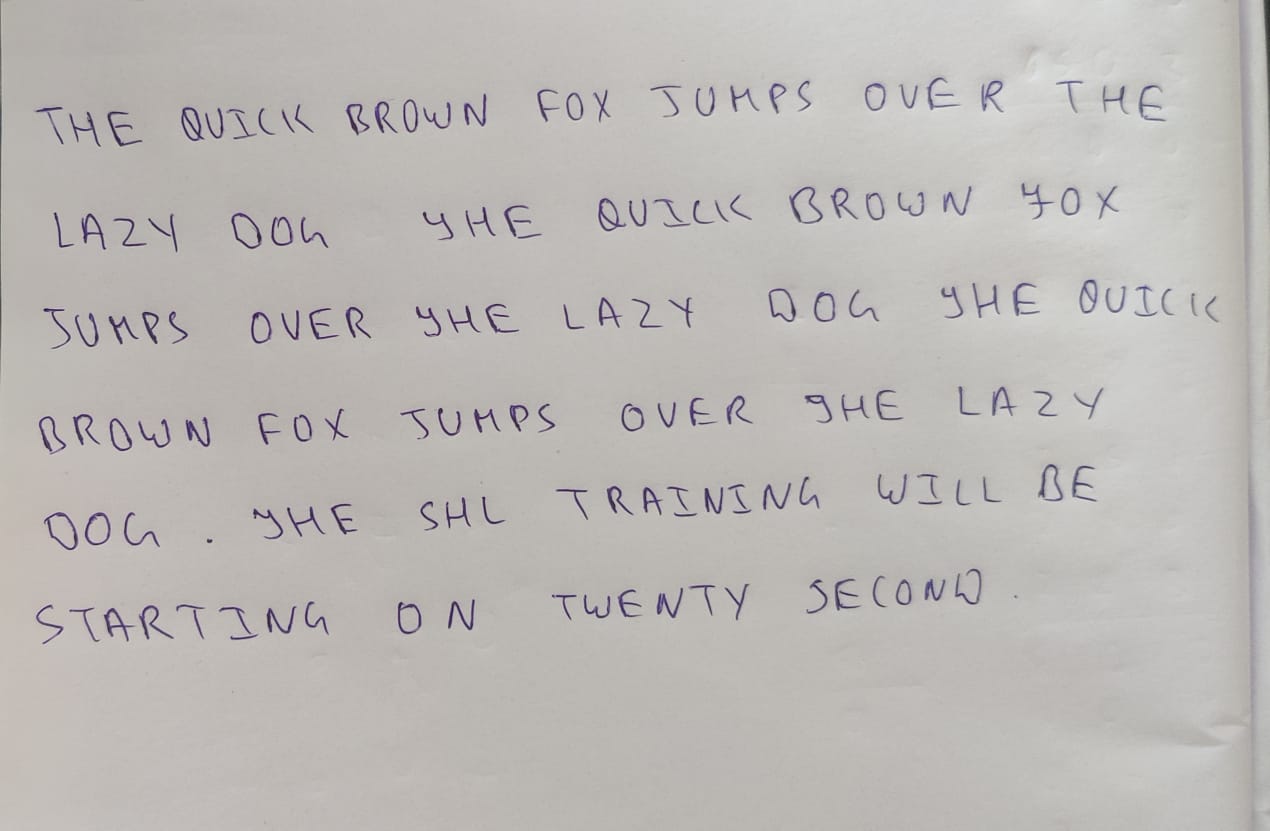 THE QUICK BROWN FOX JUMPS OVER THE
LAZY DOG YHE QUICK BROWN YOX
JUMPS OVER YHE LAZY DOG YHE QUICK
BROWN FOX JUMPS OVER YHE LAZY
DOG . YHE SHL TRAINING WILL BE
STARTING ON TWENTY SECOND .